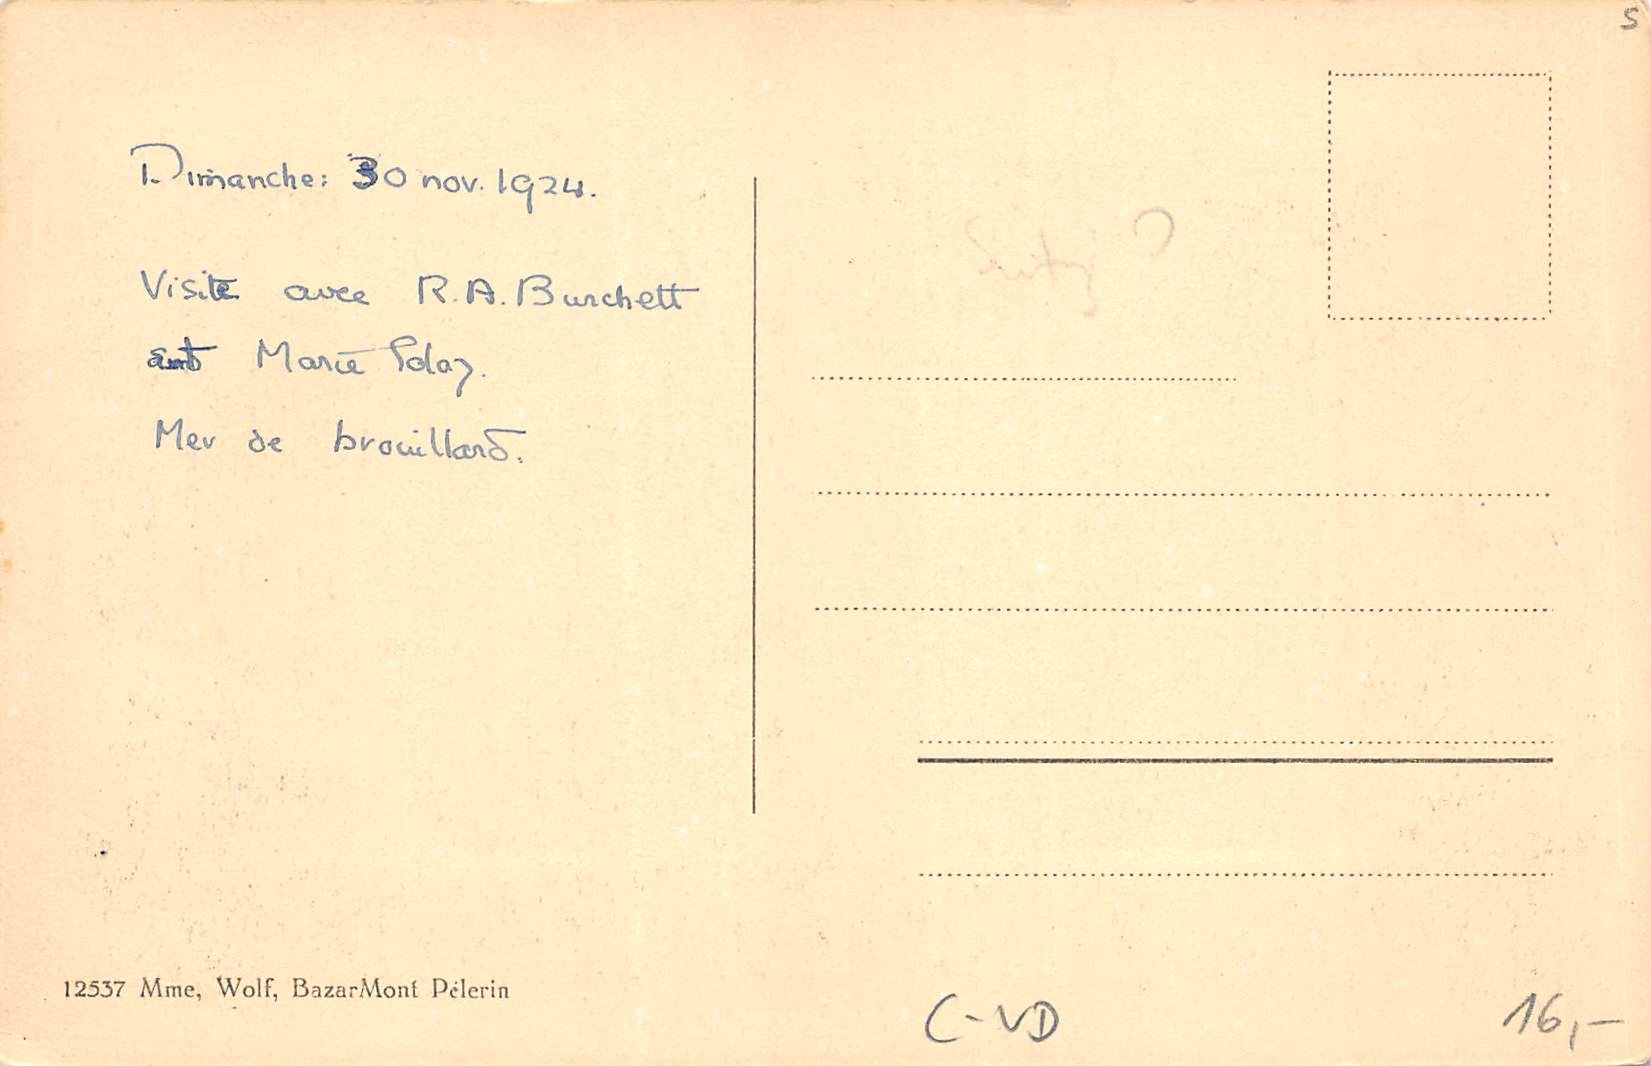 Dimanche: 30 nov. 1924.
Visite avec R.A. Burchett
Marie
Mer de brouillard.
12537 Mme, Wolf, BazarMont Pélerin
C-VD
16,-
S